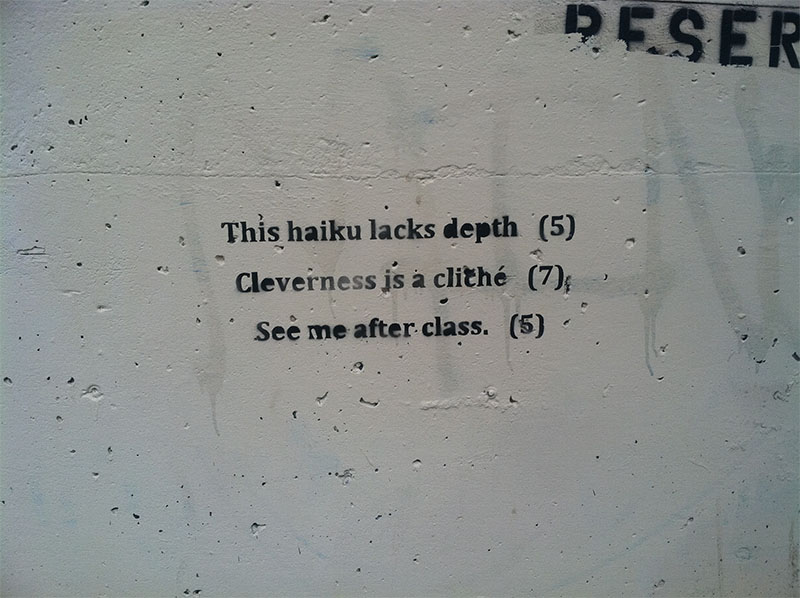 RESER
This haiku lacks depth (5)
Cleverness is a cliché (7)
See me after class. (5)